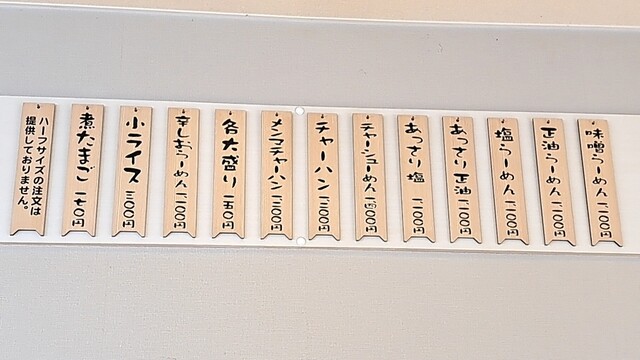 味噌らーめん 一二〇〇円
正油らーめん 一二〇〇円
塩らーめん 一二〇〇円
あっさり正油 一二〇〇円
あっさり塩 一二〇〇円
チャーシューめん 一四〇〇円
チャーハン 一二〇〇円
メンマチャーハン 一三〇〇円
各大盛り 一五〇円
辛しおらーめん 一二〇〇円
小ライス 三〇〇円
煮たまご 一七〇円
ハーフサイズの注文は
提供しておりません。